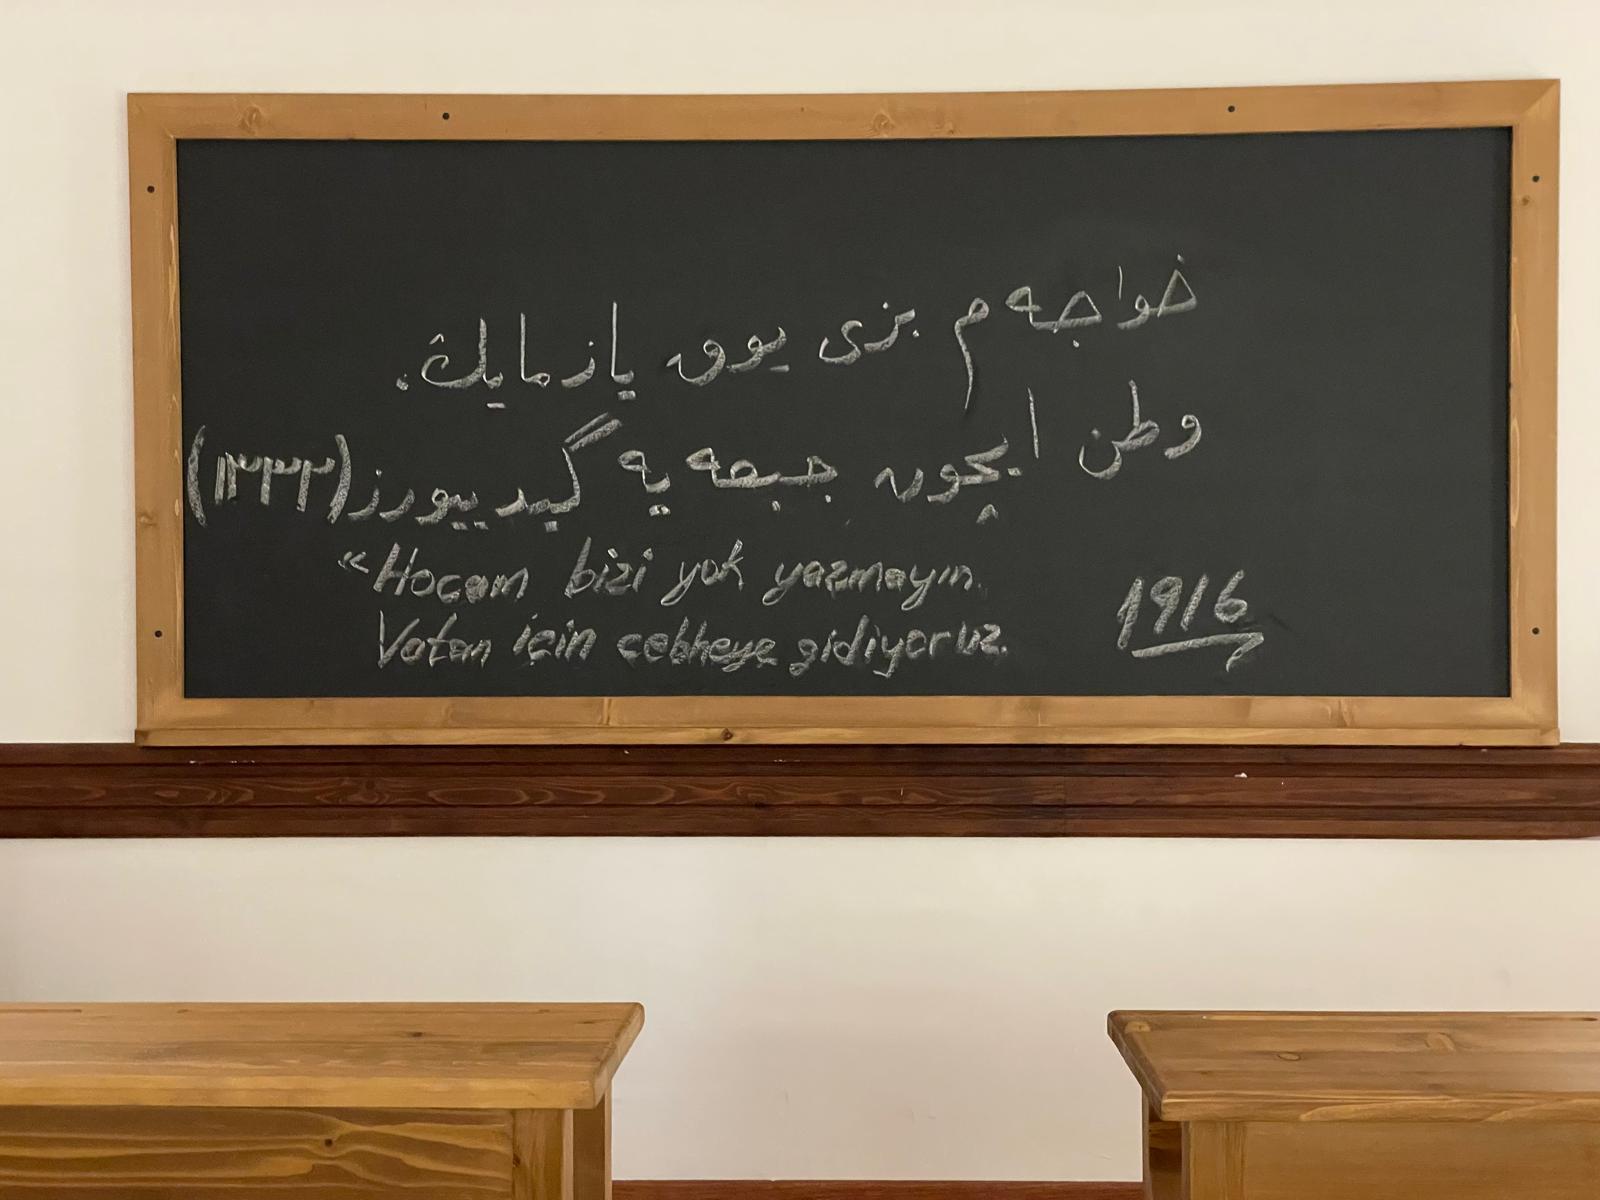 خواجه م بزی یوق یازمایڭ.
وطن ایچون جبهه یه گیدییورز (١٣٣٢)
"Hocam bizi yok yazmayın.
Vatan için cebheye gidiyoruz.
1916